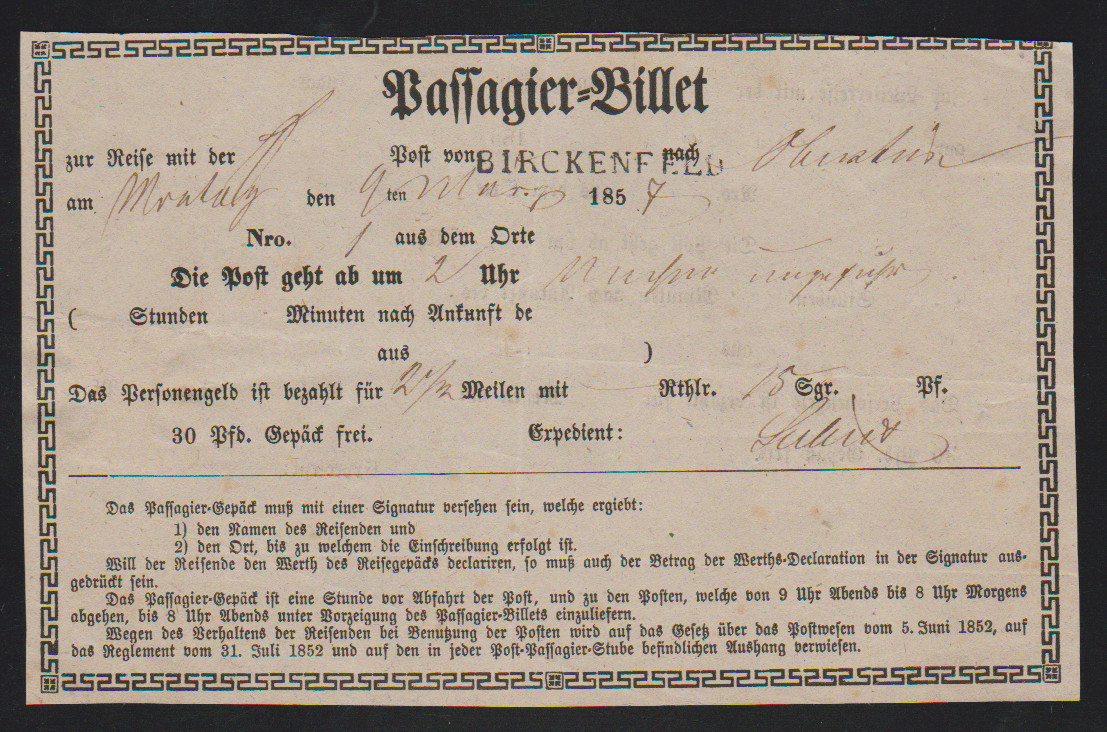 Passagier-Billet
zur Reise mit der Post von BIRCKENFELD nach
am Montag den 9ten März 1857
Nro. 1 aus dem Orte
Die Post geht ab um 2 Uhr ungefähr
( Stunden Minuten nach Ankunft de
aus )
Das Personengeld ist bezahlt für 2 1/2 Meilen mit — Rthlr. 15 Sgr. Pf.
30 Pfd. Gepäck frei. Expedient:
Das Passagier-Gepäck muß mit einer Signatur versehen sein, welche ergiebt:
1) den Namen des Reisenden und
2) den Ort, bis zu welchem die Einschreibung erfolgt ist.
Will der Reisende den Werth des Reisegepäcks declariren, so muß auch der Betrag der Werths-Declaration in der Signatur aus-
gedrückt sein.
Das Passagier-Gepäck ist eine Stunde vor Abfahrt der Post, und zu den Posten, welche von 9 Uhr Abends bis 8 Uhr Morgens
abgehen, bis 8 Uhr Abends unter Vorzeigung des Passagier-Billets einzuliefern.
Wegen des Verhaltens der Reisenden bei Benutzung der Posten wird auf das Gesetz über das Postwesen vom 5. Juni 1852, auf
das Reglement vom 31. Juli 1852 und auf den in jeder Post-Passagier-Stube befindlichen Aushang verwiesen.